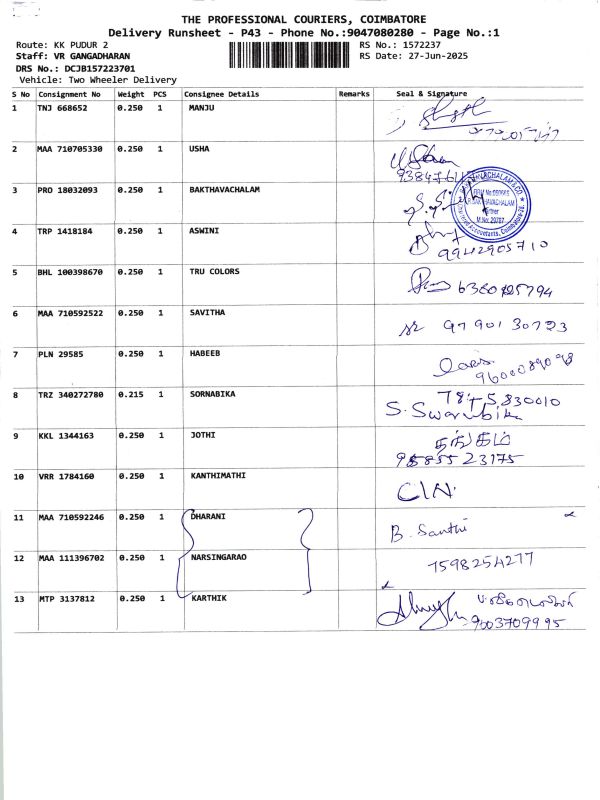 THE PROFESSIONAL COURIERS, COIMBATORE
Delivery Runsheet - P43 - Phone No.:9047080280 - Page No.:1
Route: KK PUDUR 2 RS No.: 1572237
Staff: VR GANGADHARAN RS Date: 27-Jun-2025
DRS No.: DCJB157223701
Vehicle: Two Wheeler Delivery
S No Consignment No Weight PCS Consignee Details Remarks Seal & Signature
1 TNJ 668652 0.250 1 MANJU
2 MAA 710705330 0.250 1 USHA
3 PRO 18032093 0.250 1 BAKTHAVACHALAM
4 TRP 1418184 0.250 1 ASWINI
9942905710
5 BHL 100398670 0.250 1 TRU COLORS
6 MAA 710592522 0.250 1 SAVITHA
97901 30723
7 PLN 29585 0.250 1 HABEEB
8 TRZ 340272780 0.215 1 SORNABIKA
S. Swarnbika
9 KKL 1344163 0.250 1 JOTHI
தங்கம்
10 VRR 1784160 0.250 1 KANTHIMATHI
11 MAA 710592246 0.250 1 DHARANI
B. Santhi
12 MAA 111396702 0.250 1 NARSINGARAO
7598254277
13 MTP 3137812 0.250 1 KARTHIK
9003709995